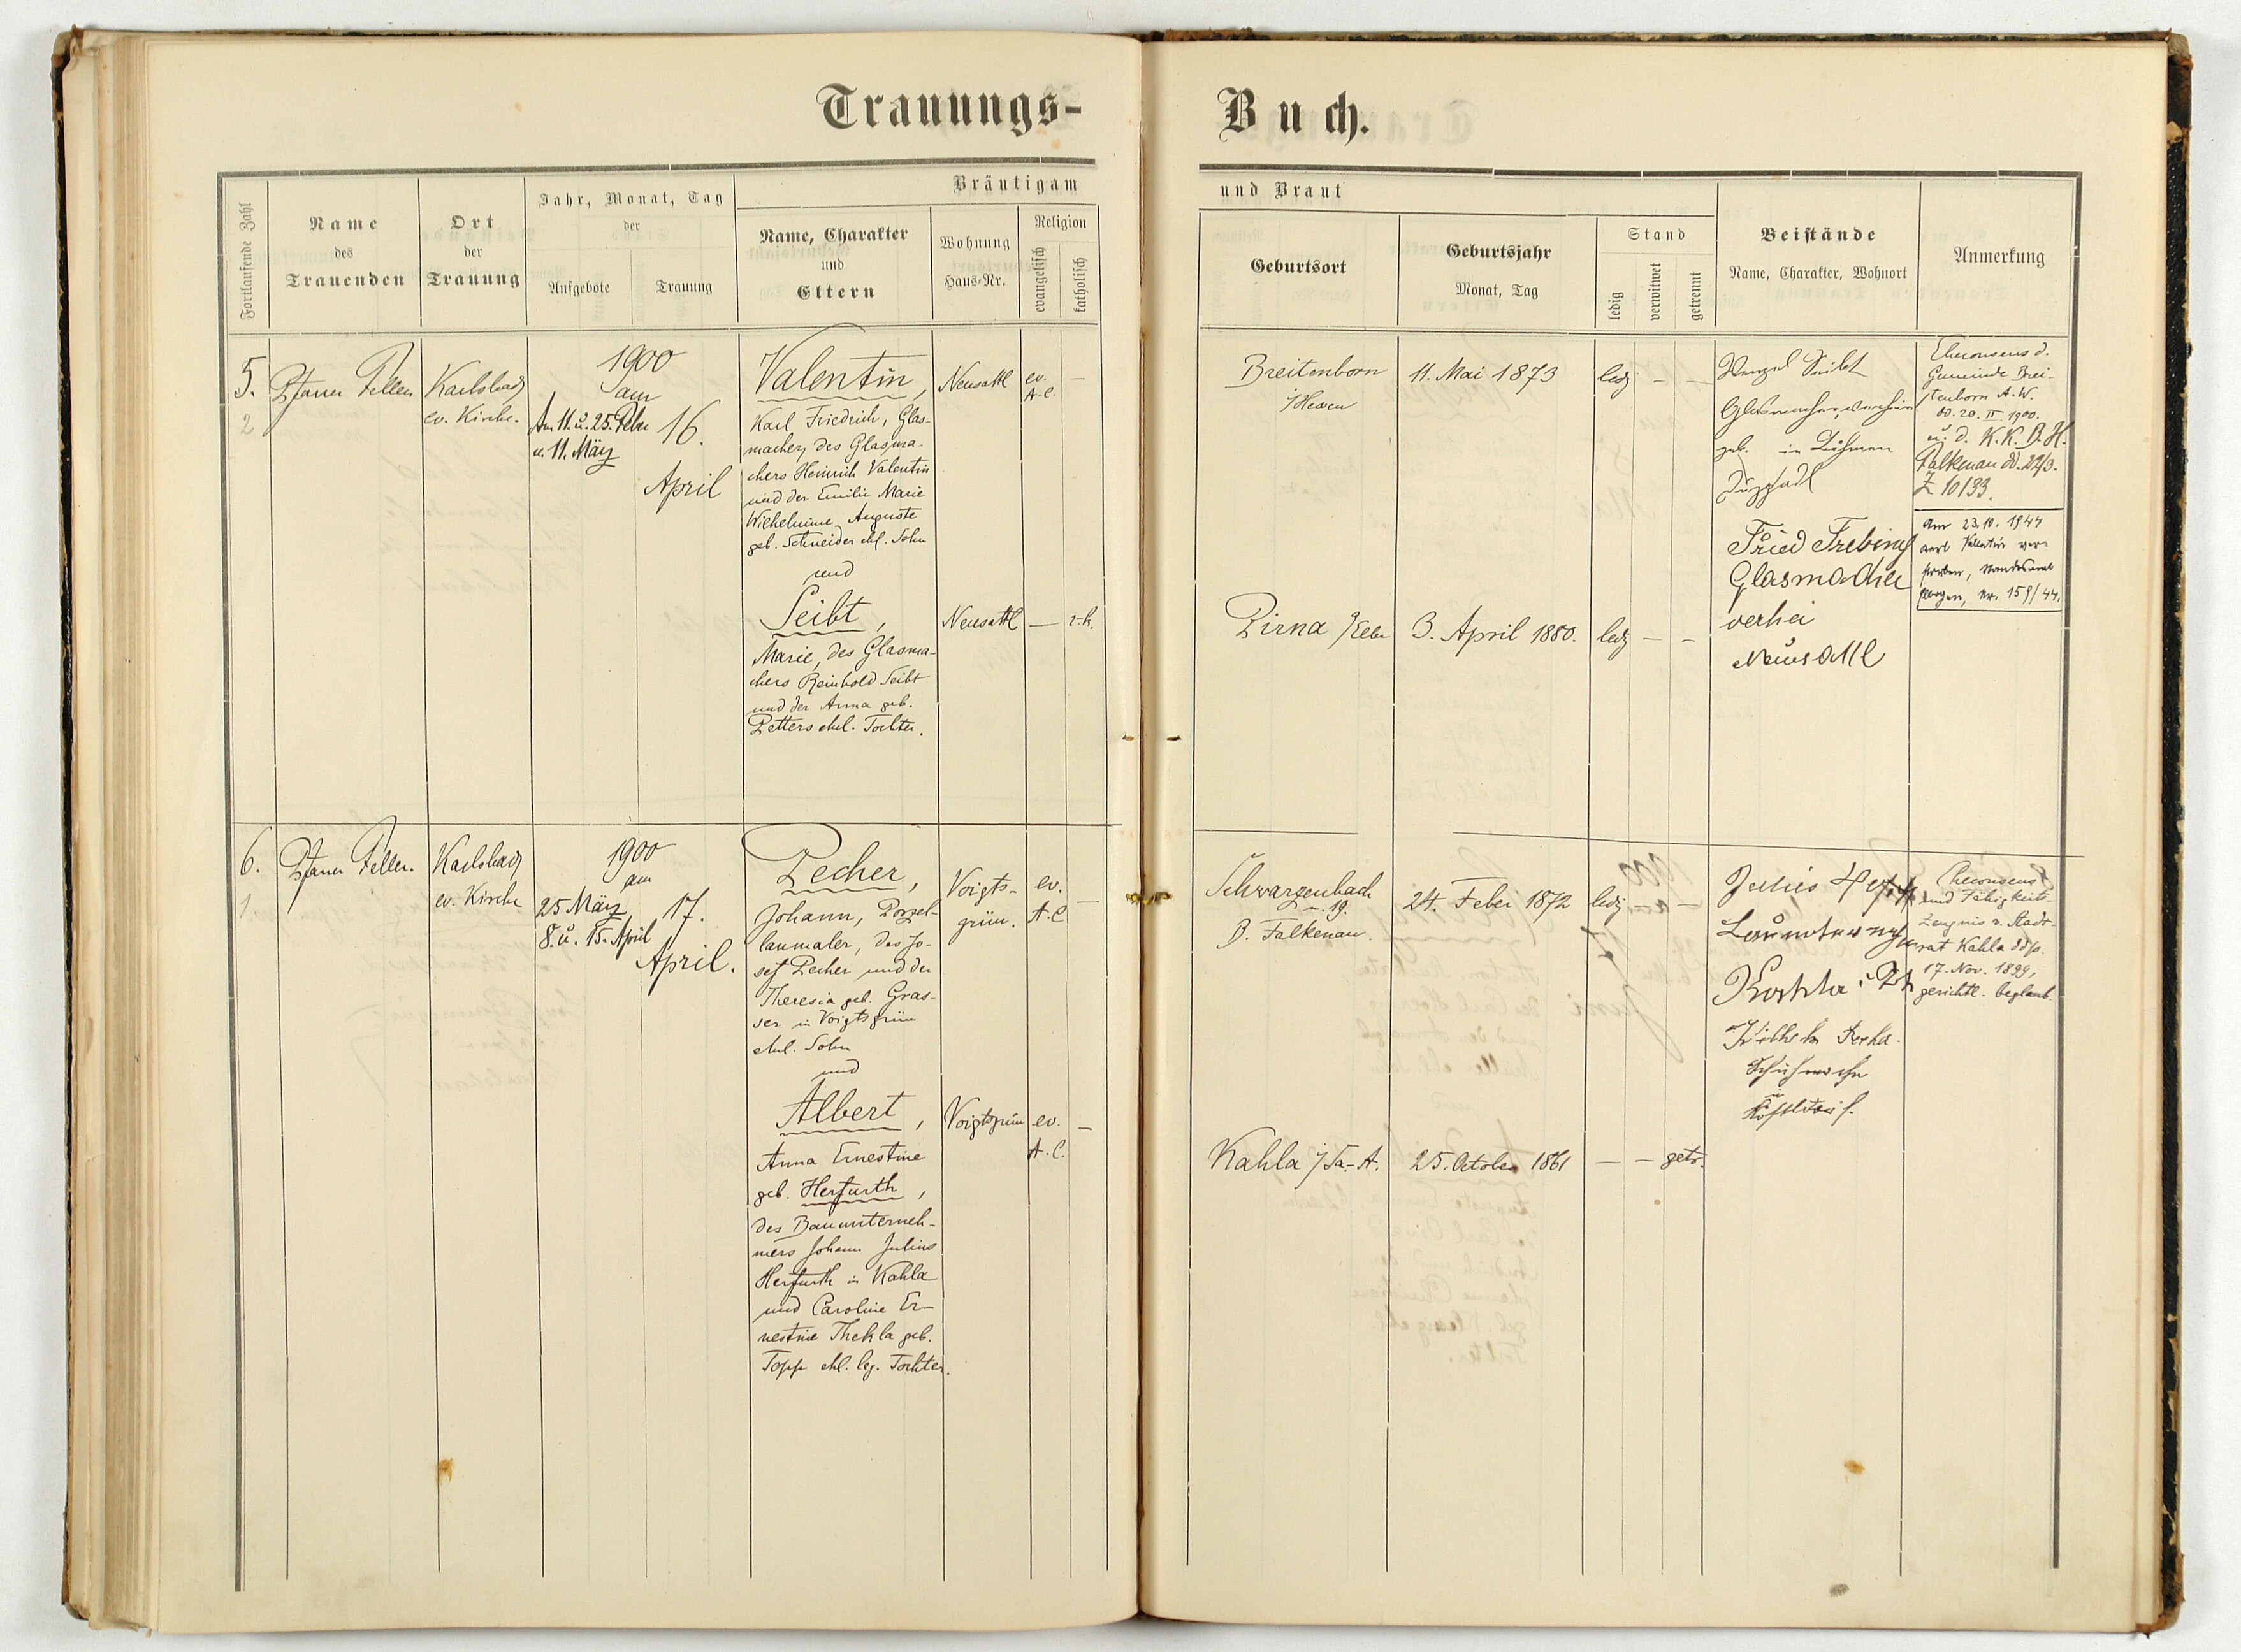 Trauungs-
Buch.
Fortlaufende Zahl
Name
des
Trauenden
Ort
der
Trauung
Jahr, Monat, Tag
der
Aufgebote
Trauung
Bräutigam
Name, Charakter
und
Eltern
Wohnung
Haus-Nr.
Religion
evangelisch
katholisch
und Braut
Geburtsort
Geburtsjahr
Monat, Tag
Stand
ledig
verwitwet
getrennt
Beistände
Name, Charakter, Wohnort
Anmerkung
5.
2
Pfarrer Feller
Karlsbad
ev. Kirche.
1900
am
Am 11. u. 25. Feber
u. 11. März
16.
April
Valentin,
Karl Friedrich, Glas-
macher, des Glasma-
chers Heinrich Valentin
und der Emilie Marie
Wilhelmine Auguste
geb. Schneider ehl. Sohn
und
Seibt,
Marie, des Glasma-
chers Reinhold Seibt
und der Anna geb.
Petters ehel. Tochter.
Neusattl
ev.
A.C.
—
Neusattl
—
r.k.
Breitenborn
i/Hessen
11. Mai 1873
ledig — —
Pirna /Elbe
3. April 1880.
ledig — —
Wenzel Seibt
Glasmacher
geb. in Böhmen
Fried Frebing
Glasmacher
verhei
Neusattl
Eheconsens d.
Gemeinde Brei-
tenborn A.W.
dd. 20. II 1900.
u. d. K.K. B.H.
Falkenau dd. 22/3.
Z 10133.
Am 23.10.1944
Karl Valentin ver-
storben, Standesamt
Nr. 159/44.
6.
1
Pfarrer Feller.
Karlsbad
ev. Kirche
1900
am
25 März
8. u. 15. April
17.
April.
Pecher,
Johann, Porzel-
lanmaler, des Jo-
sef Pecher und der
Theresia geb. Gras-
ser in Voigtsgrün
ehel. Sohn
und
Albert,
Anna Ernestine
geb. Herfurth,
des Bauunterneh-
mers Johann Julius
Herfurth in Kahla
und Caroline Er-
nestine Thekla geb.
Topf ehl. leg. Tochter.
Voigts-
grün.
ev.
A.C
—
Voigtsgrün
ev.
A.C.
—
Schwarzenbach
n. 19.
B. Falkenau.
24. Feber 1872
ledig — —
Kahla i/Sa.-A.
25. October 1861
— — getr.
Julius
Kahla
Wilhelm
Schuhmacher
in
Eheconsens
und Fähigkeits-
zeugnis v. Stadt-
rat Kahla ddo.
17. Nov. 1899,
gerichtl. beglaub.